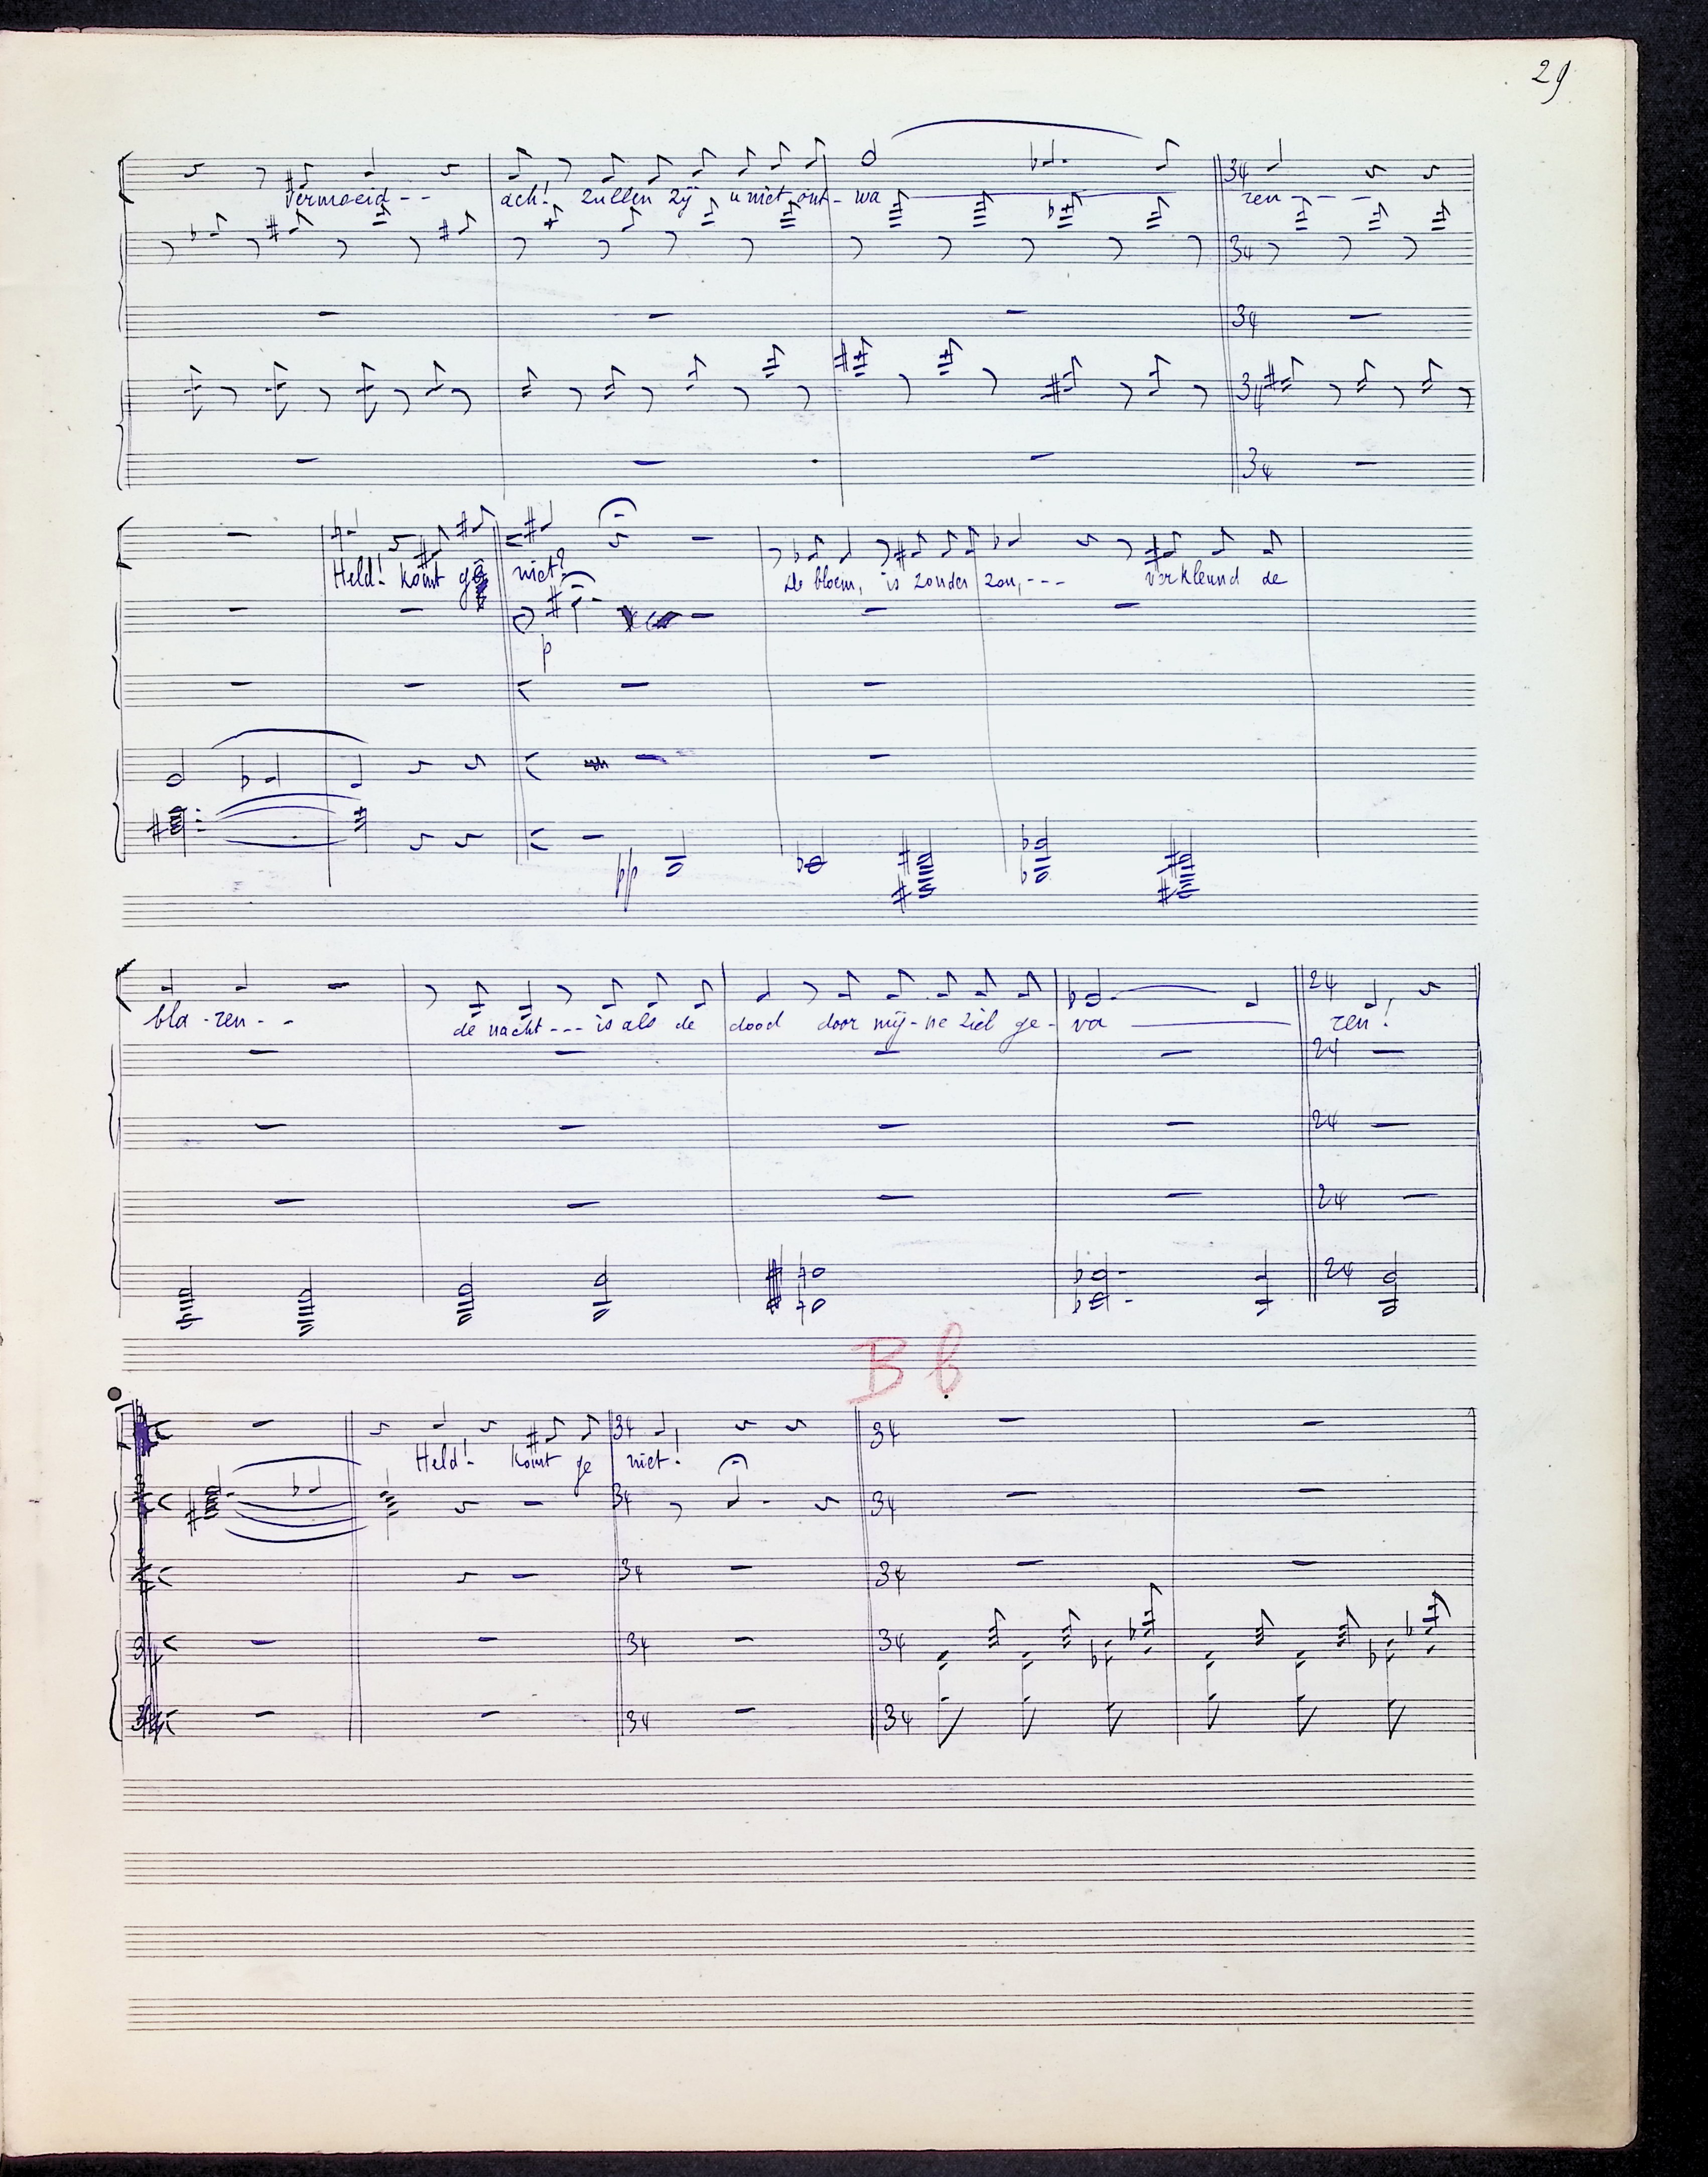 29
34
vermoeid - - ach! zullen zij u niet ont - wa ren - - -
34
34
34
34
Held! komt gij niet? de bloem, is zonder zon, - - - verkleund de
p
pp
24
bla - ren - - de nacht - - - is als de dood door mij - ne ziel ge - va ren!
24
24
24
24
B b
34 34
Held! komt ge niet!
34 34
34 34
34 34
34 34